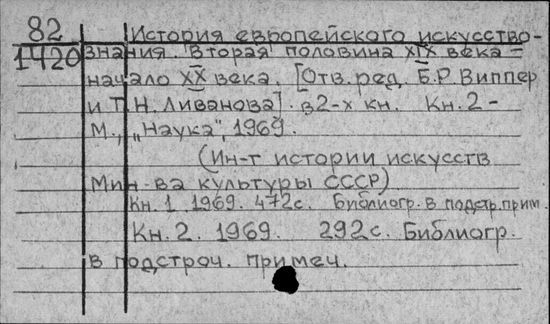 82 История европейского искусство-
1420 знания. Вторая половина XIX века –
начало XX века. [Отв. ред. Б.Р. Виппер
и Т.Н. Ливанова]. в 2-х кн. Кн. 2 -
М., „Наука", 1969.
(Ин-т истории искусств
Мин-ва культуры СССР)
Кн. 1. 1969. 472с. Библиогр. в подстр. прим.
Кн. 2. 1969. 292с. Библиогр.
в подстроч. примеч.